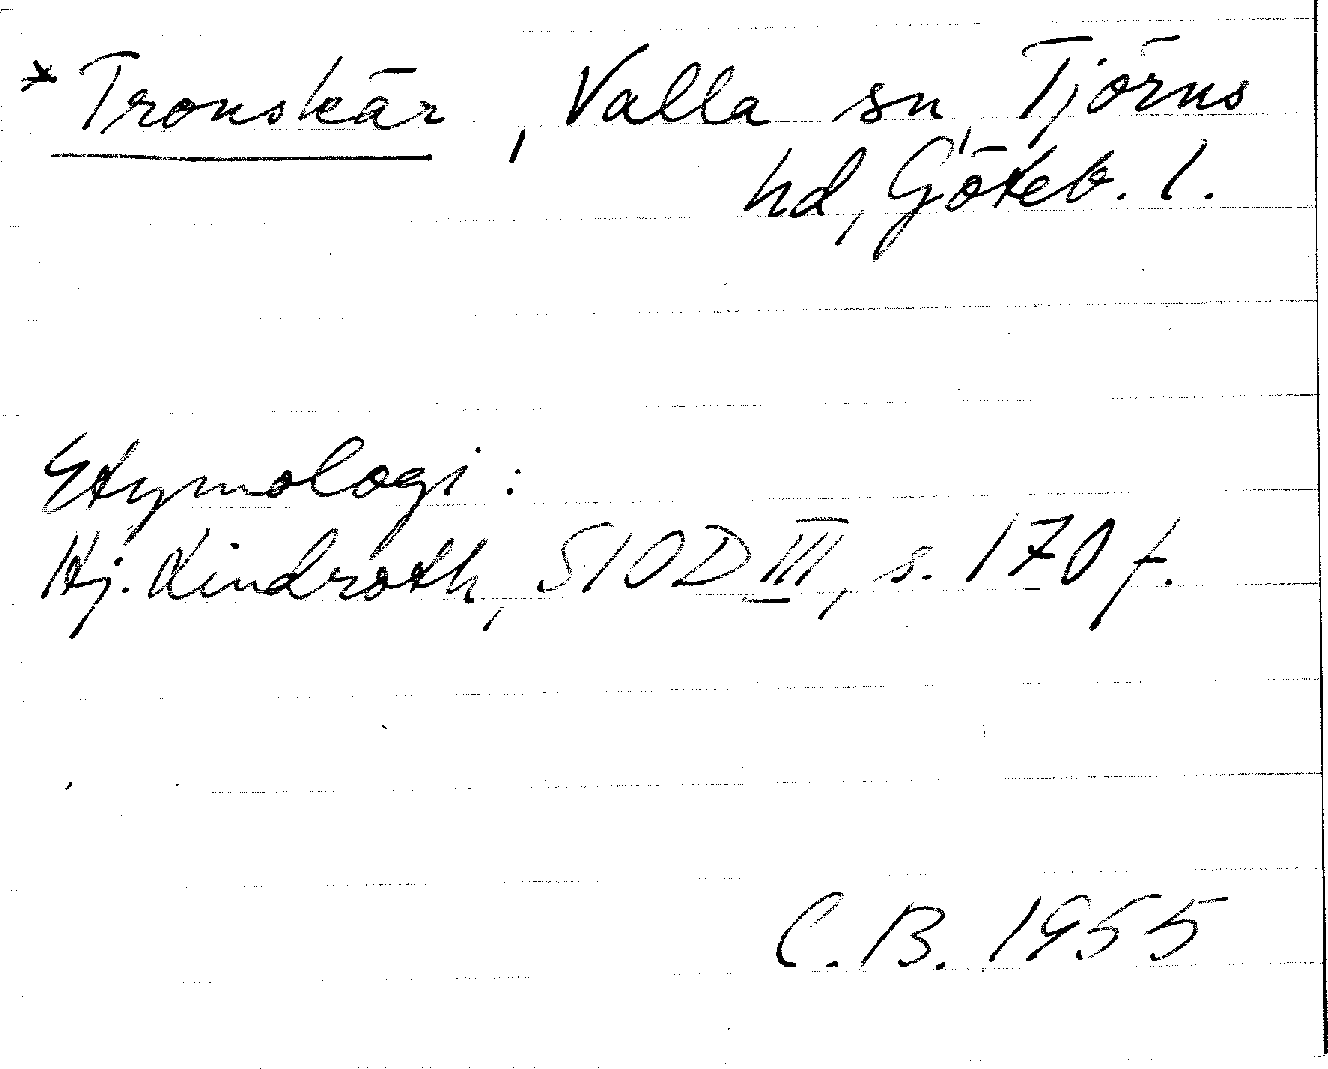 * Tronskär, Valla sn, Tjörns
hd, Göteb. l.
Etymologi:
Hj. Lindroth, SIOD III, s. 170 f.
C.B. 1955